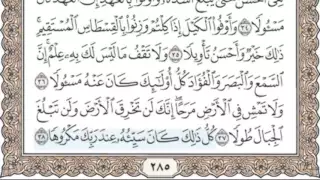 مَسْـُٔولًا ﴿٣٤﴾ وَأَوْفُوا۟ ٱلْكَيْلَ إِذَا كِلْتُمْ وَزِنُوا۟ بِٱلْقِسْطَاسِ ٱلْمُسْتَقِيمِ
ذَٰلِكَ خَيْرٌ وَأَحْسَنُ تَأْوِيلًا ﴿٣٥﴾ وَلَا تَقْفُ مَا لَيْسَ لَكَ بِهِۦ عِلْمٌ إِنَّ
ٱلسَّمْعَ وَٱلْبَصَرَ وَٱلْفُؤَادَ كُلُّ أُو۟لَـٰٓئِكَ كَانَ عَنْهُ مَسْـُٔولًا ﴿٣٦﴾
وَلَا تَمْشِ فِى ٱلْأَرْضِ مَرَحًا إِنَّكَ لَن تَخْرِقَ ٱلْأَرْضَ وَلَن تَبْلُغَ
ٱلْجِبَالَ طُولًا ﴿٣٧﴾ كُلُّ ذَٰلِكَ كَانَ سَيِّئُهُۥ عِندَ رَبِّكَ مَكْرُوهًا ﴿٣٨﴾
٢٨٥